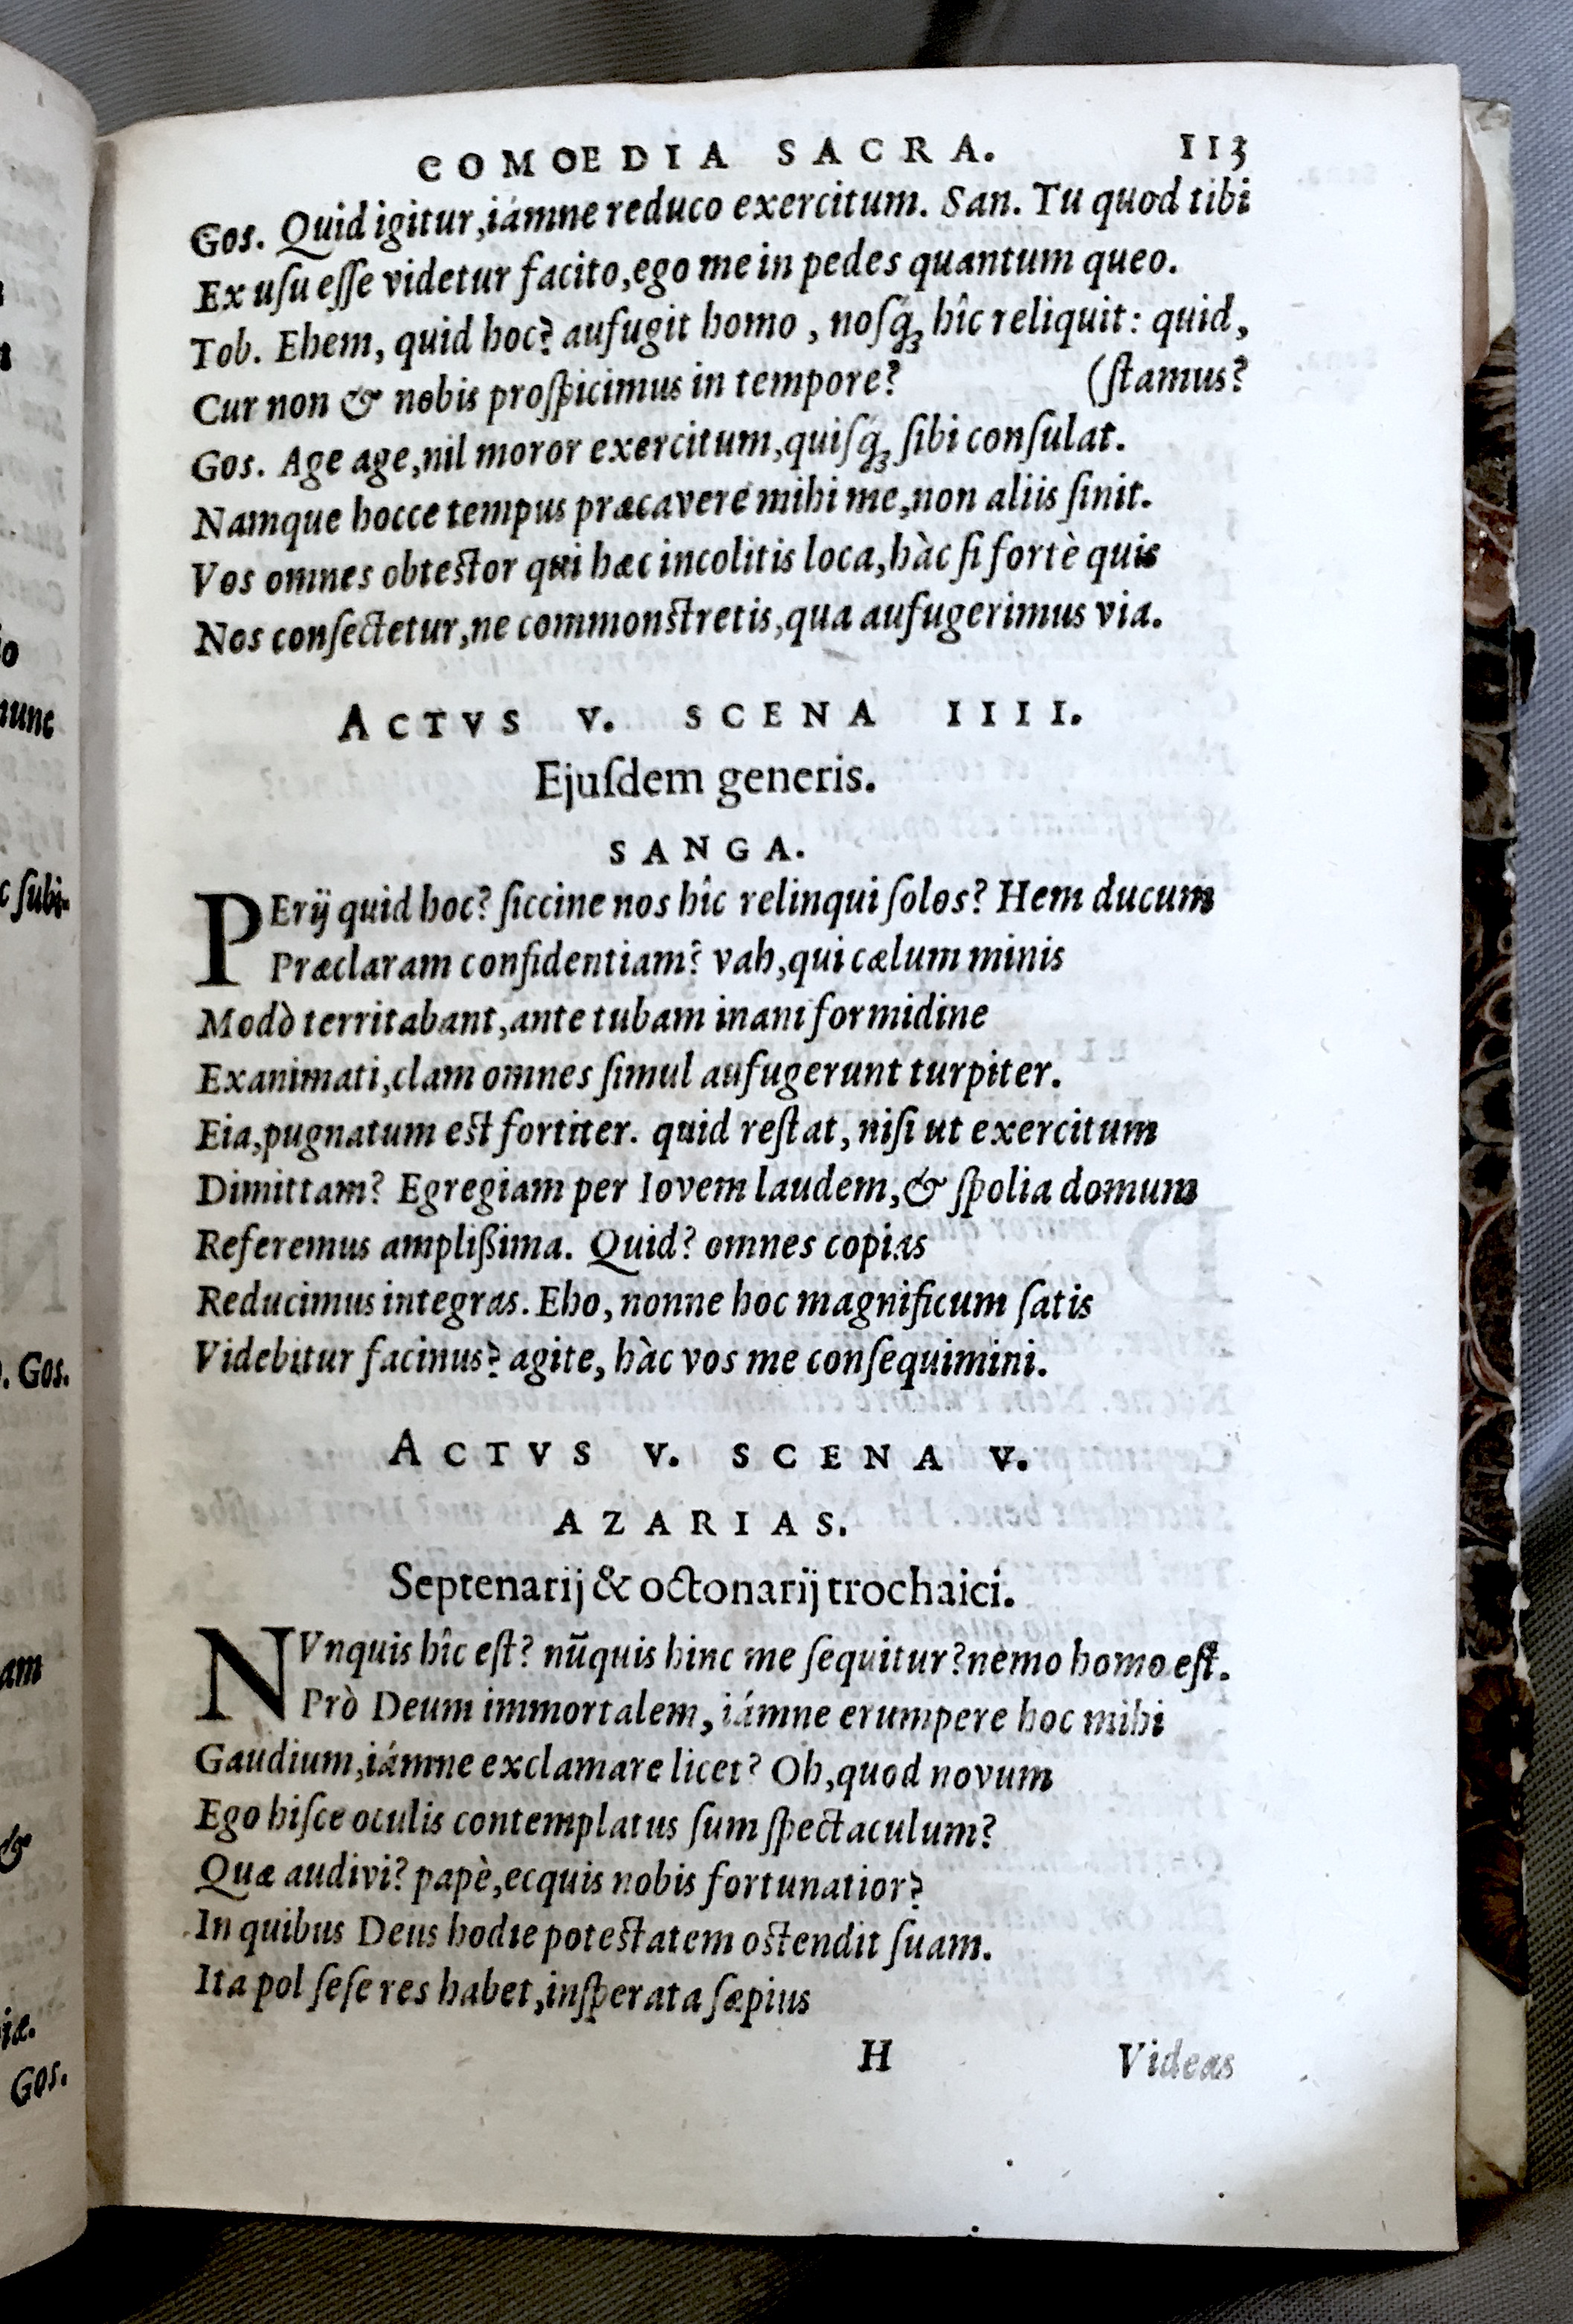 COMOEDIA SACRA. 113
Gos. Quid igitur, iámne reduco exercitum. San. Tu quod tibi
Ex uſu eſſe videtur facito, ego me in pedes quantum queo.
Tob. Ehem, quid hoc? aufugit homo, noſq́ꝫ hîc reliquit: quid,
Cur non & nobis proſpicimus in tempore? (ſtamus?
Gos. Age age, nil moror exercitum, quiſq́ꝫ ſibi conſulat.
Namque hocce tempus præcavere mihi me, non aliis ſinit.
Vos omnes obteſtor qui hæc incolitis loca, hàc ſi fortè quis
Nos conſectetur, ne commonſtretis, qua aufugerimus via.
ACTVS V. SCENA IIII.
Ejuſdem generis.
SANGA.
PErij quid hoc? ſiccine nos hîc relinqui ſolos? Hem ducum
Præclaram confidentiam? vah, qui cælum minis
Modò territabant, ante tubam inani formidine
Exanimati, clam omnes ſimul aufugerunt turpiter.
Eia, pugnatum eſt fortiter. quid reſtat, niſi ut exercitum
Dimittam? Egregiam per Iovem laudem, & ſpolia domum
Referemus amplißima. Quid? omnes copias
Reducimus integras. Eho, nonne hoc magnificum ſatis
Videbitur facinus? agite, hàc vos me conſequimini.
ACTVS V. SCENA V.
AZARIAS.
Septenarij & octonarij trochaici.
NVnquis hîc eſt? nūquis hinc me ſequitur? nemo homo eſt.
Prò Deum immortalem, iámne erumpere hoc mihi
Gaudium, iámne exclamare licet? Oh, quod novum
Ego hiſce oculis contemplatus ſum ſpectaculum?
Quæ audivi? papè, ecquis nobis fortunatior?
In quibus Deus hodie poteſtatem oſtendit ſuam.
Ita pol ſeſe res habet, inſperata ſæpius
H Videas